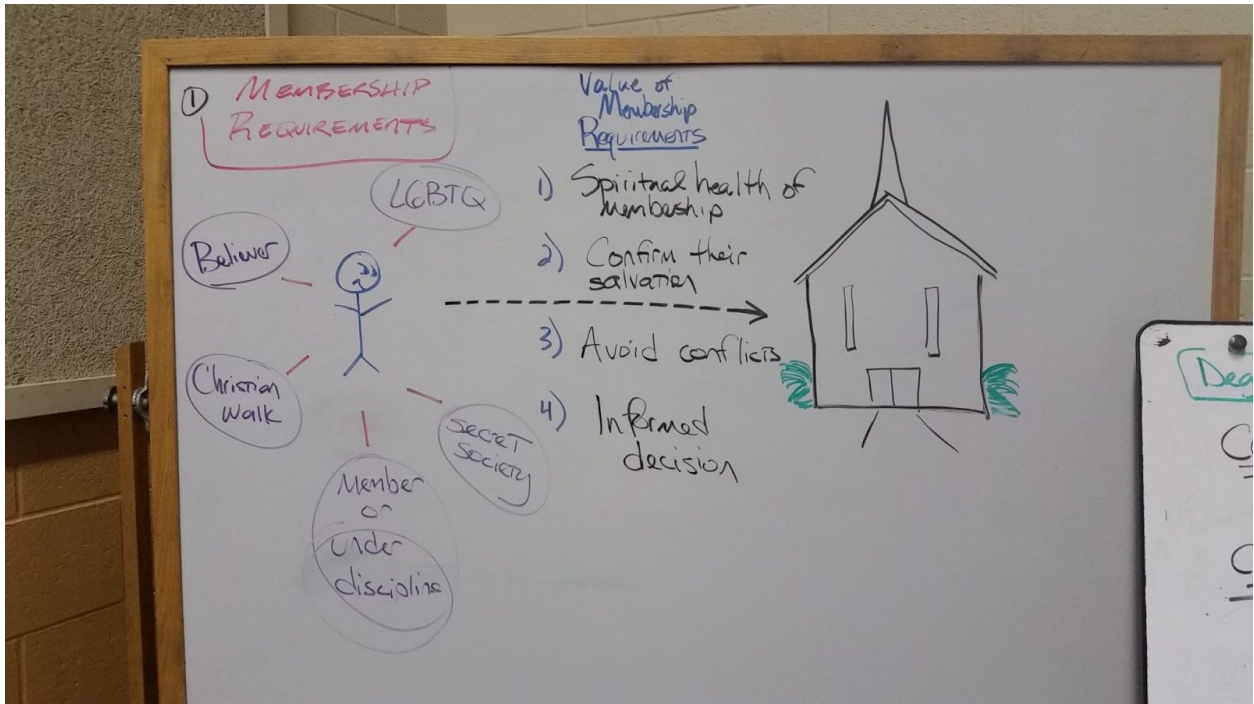 ① MEMBERSHIP
REQUIREMENTS
LGBTQ
Believer
Christian
walk
Member
or
under
discipline
SECRET
SOCIETY
Value of
Membership
Requirements
1) Spiritual health of
membership
2) Confirm their
salvation
3) Avoid conflicts
4) Informed
decision